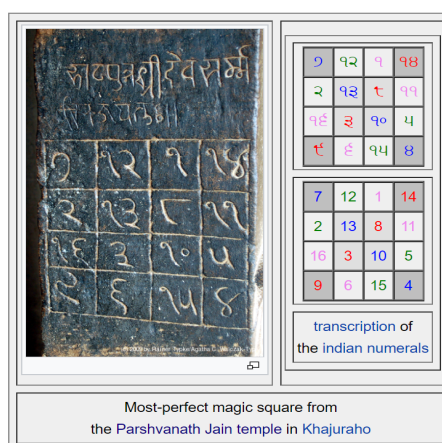 ७ १२ १ १४
२ १३ ८ ११
१६ ३ १० ५
९ ६ १५ ४
७ १२ १ १४
२ १३ ८ ११
१६ ३ १० ५
९ ६ १५ ४
7 12 1 14
2 13 8 11
16 3 10 5
9 6 15 4
transcription of
the indian numerals
Most-perfect magic square from
the Parshvanath Jain temple in Khajuraho